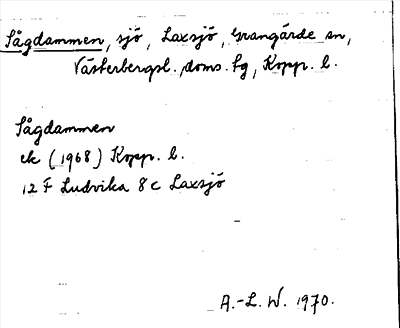 Sågdammen, sjö, Laxsjö, Grangärde sn,
Västerbergsl. doms. tg, Kopp. l.
Sågdammen
ek (1968) Kopp. l.
12 F Ludvika 8 c Laxsjö
A.-L. W. 1970.